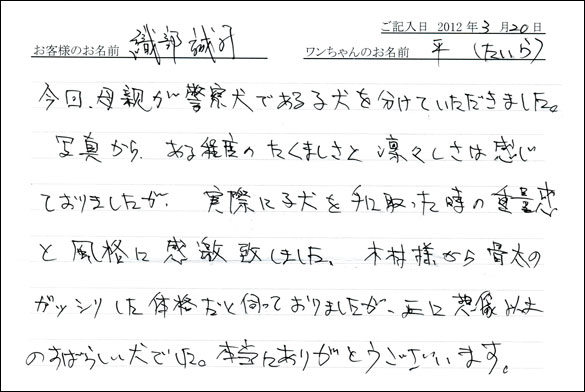 ご記入日 2012年3月20日
お客様のお名前 織部 誠 ワンちゃんのお名前 平(たいら)
今回、母親が警察犬である子犬を分けていただきました。
写真から、ある程度のたくましさと凛々しさは感じ
ておりましたが、実際に子犬を手に取った時の重量感
と風格に感激致しました。木村様から骨太の
ガッシリした体格だと伺っておりましたが、正に想像以上
のすばらしい犬でした。本当にありがとうございます。